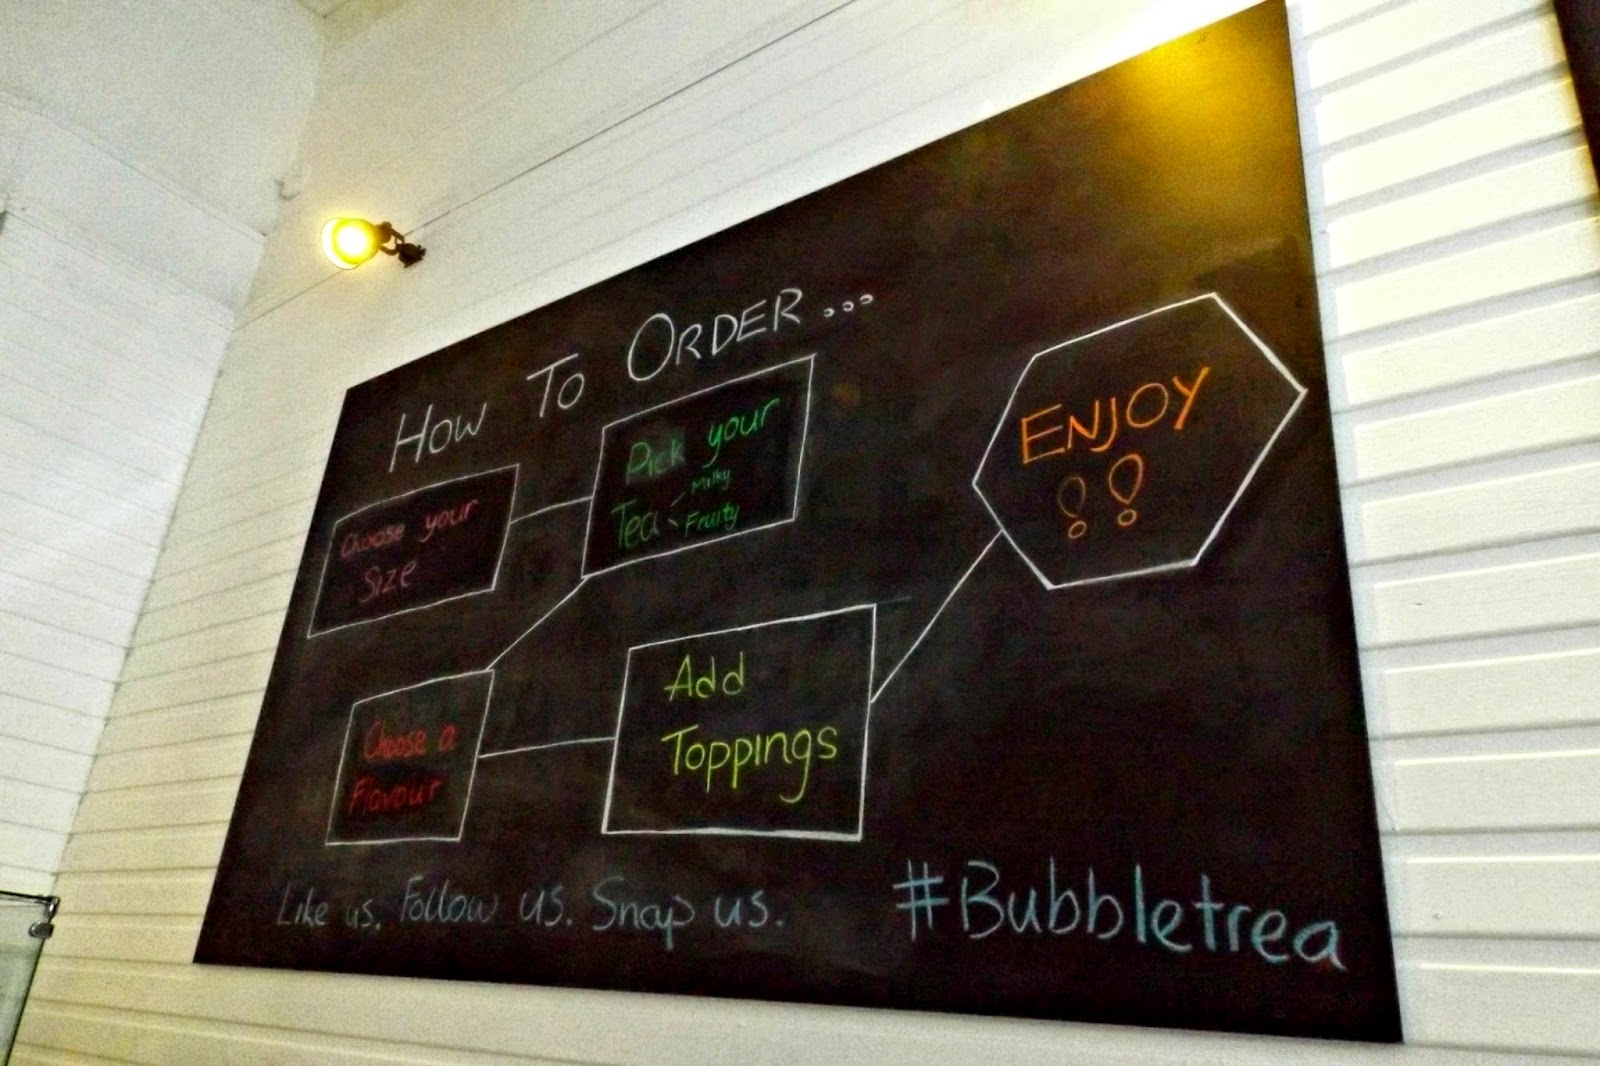 How To ORDER...
Choose your
Size
Pick your
Tea
Milky
Fruity
Choose a
Flavour
Add
Toppings
ENJOY
!!
Like us. Follow us. Snap us.
#Bubbletrea